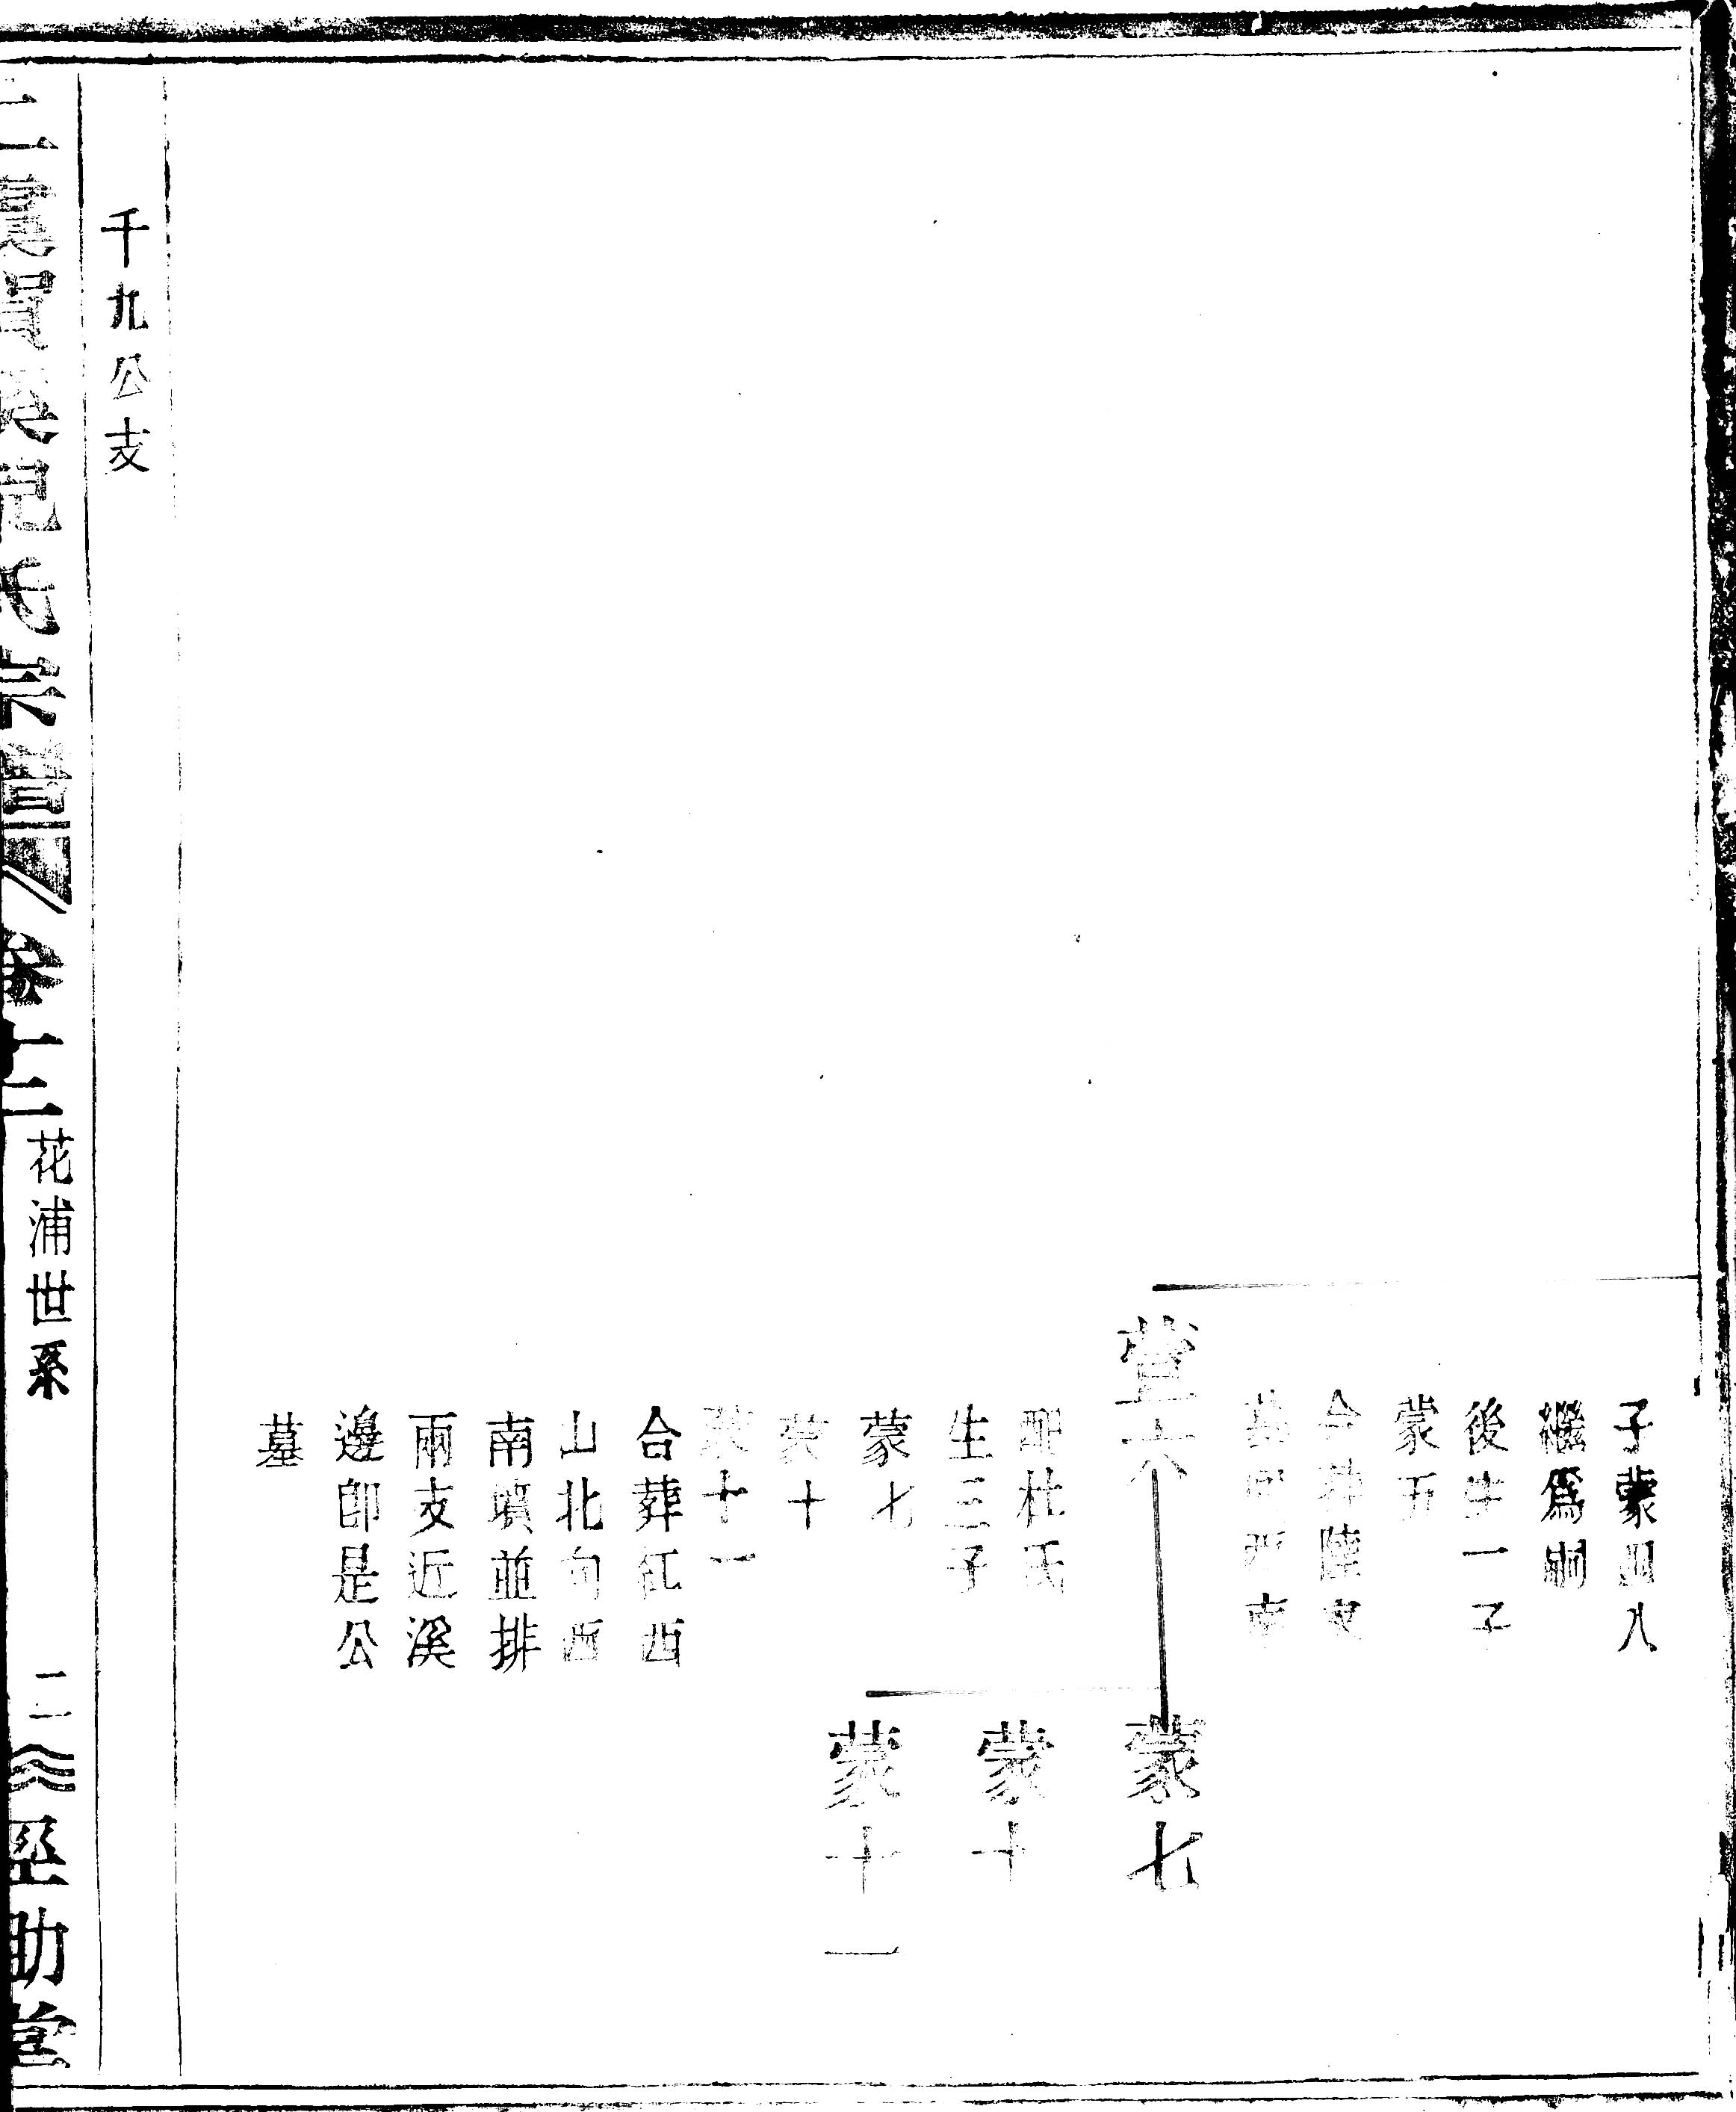 子蒙四八
繼爲嗣
後生一子
蒙五
合葬陸
墓西南
堂六
配杜氏
生三子
蒙七
蒙十
蒙十一
合葬江西
山北向西
南墳並排
兩支近溪
邊卽是公
墓
蒙七
蒙十
蒙十一
千九公支
氏宗譜卷十二
花浦世系
二
堂